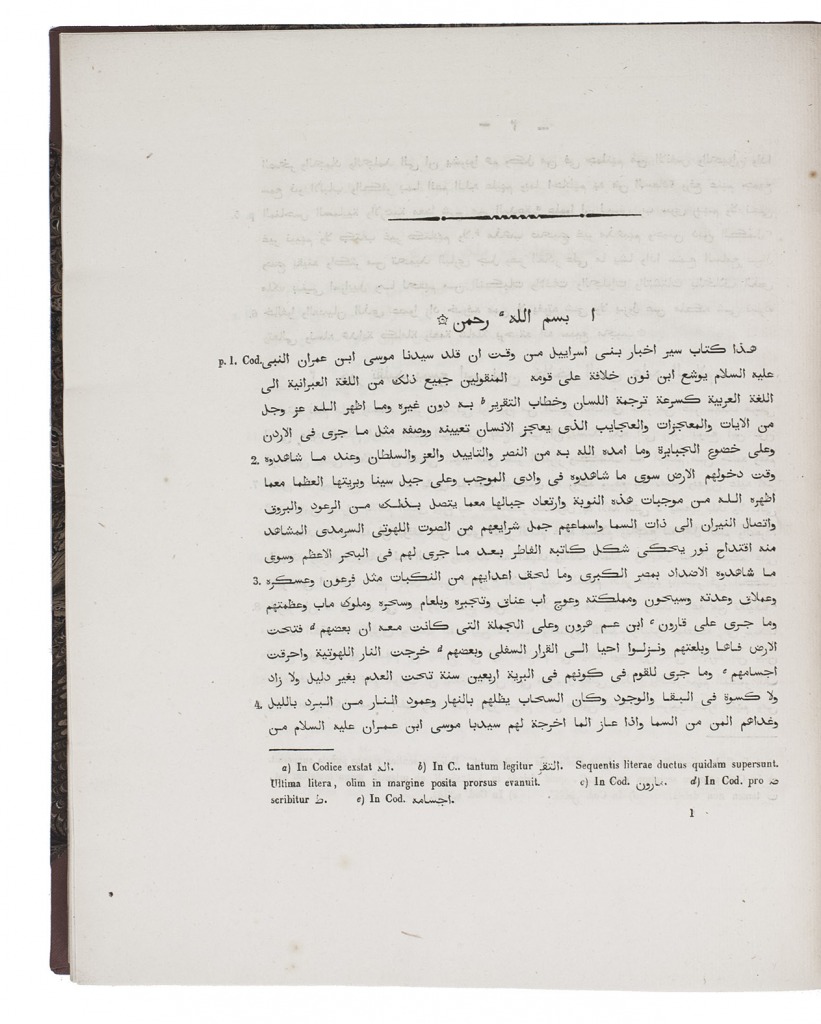 ا بسم الله a رحمن
p. 1. Cod. هذا كتاب سير اخبار بنى اسراييل من وقت ان قلد سيدنا موسى ابن عمران النبى
عليه السلام يوشع ابن نون خلافة على قومه المنقولين جميع ذلك من اللغة العبرانية الى
اللغة العربية كسرعة ترجمة اللسان وخطاب التقرير b به دون غيره وما اظهر الله عز وجل
من الايات والمعجزات والعجايب الذى يعجز الانسان تعيينه ووصفه مثل ما جرى فى الاردن
2. وعلى خضوع الجبابرة وما امده الله به من النصر والتاييد والعز والسلطان وعند ما شاهدوه
وقت دخولهم الارض سوى ما شاهدوه فى وادى الموجب وعلى جبل سينا وبريتها العظما معما
اظهره الله من موجبات هذه النوبة وارتعاد جبالها معما يتصل بذلك من الرعود والبروق
واتصال النيران الى ذات السما واسماعهم جمل شرايعهم من الصوت اللهوتى السرمدى المشاهد
منه اقتداح نور يحكى شكل كاتبه الفاطر بعد ما جرى لهم فى البحر الاعظم وسوى
3. ما شاهدوه الاضداد بمصر الكبرى وما لحق اعدايهم من النكبات مثل فرعون وعسكره
وعملاق وعدته وسيحون ومملكته وعوج اب عناق وتجبره وبلعام وسحره وملوك ماب وعظمتهم
وما جرى على قارون c ابن عم هرون وعلى الجملة التى كانت معه ان بعضهم d فتحت
الارض فاها وبلعتهم ونزلوا احيا الى القرار السفلى وبعضهم d خرجت النار اللهوتية واحرقت
اجسامهم e وما جرى للقوم فى كونهم فى البرية اربعين سنة تحت العدم بغير دليل ولا زاد
4. ولا كسوة فى البقا والوجود وكان السحاب يظلهم بالنهار وعمود النار من البرد بالليل
وغداهم المن من السما واذا عاز الما اخرجة لهم سيدبا موسى ابن عمران عليه السلام من
a) In Codice exstat اله. b) In C.. tantum legitur التقر. Sequentis literae ductus quidam supersunt.
Ultima litera, olim in margine posita prorsus evanuit. c) In Cod. مارون. d) In Cod. pro ض
scribitur ط. e) In Cod. اجسامه.
1